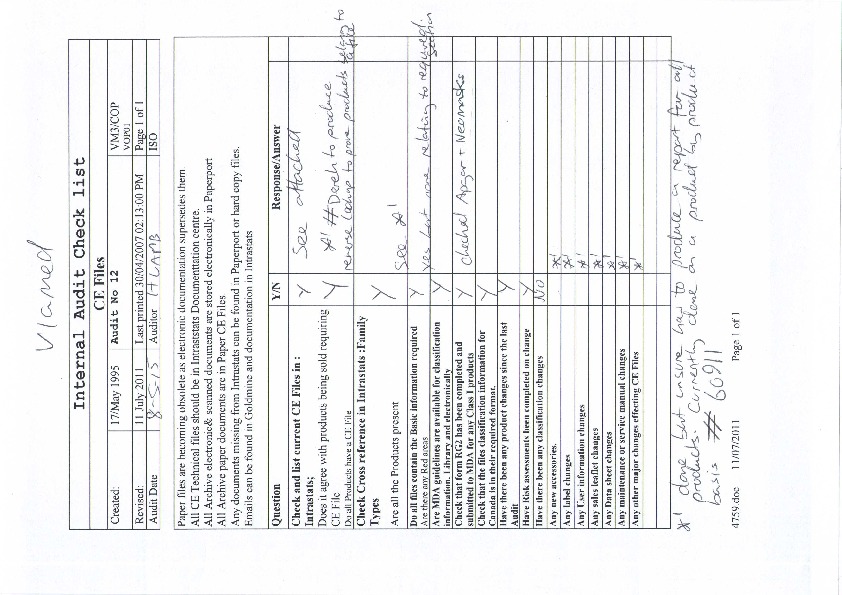 Viamed
Internal Audit Check list
CE Files
Created: 17/May 1995 Audit No 12 VM3/COP
VOP01
Revised: 11 July 2011 Last printed 30/04/2007 02:13:00 PM Page 1 of 1
Audit Date 8-5-15 Auditor H LAMB ISO
Paper files are becoming obsolete as electronic documentation supersedes them.
All CE Technical files should be in Intraststats Documenttation centre.
All Archive electronic& scanned documents are stored electronically in Paperport
All Archive paper documents are in Paper CE Files
Any documents missing from Intrastats can be found in Paperport or hard copy files.
Emails can be found in Goldmine and documentation in Intrastats
Question Y/N Response/Answer
Check and list current CE Files in : Y See attached
Intrastats;
Does it agree with products being sold requiring Y *1 # Derek to produce
CE File
Do all Products have a CE File reverse lookup to prove products belong to a file
Check Cross reference in Intrastats :Family Y
Types
Are all the Products present See *1
Do all files contain the Basic information required Y
Are there any Red areas Yes but none relating to required section
Are MDA guidelines are available for classification Y
information, Library and electronically
Check that form RG2 has been completed and Y checked Apgar + Neomasks
submitted to MDA for any Class I products
Check that the files classification information for Y
Canada is in their required format.
Have there been any product changes since the last Y
Audit
Have Risk assessments been completed on change Y
Have there been any classification changes NO
Any new accessories. *1
Any label changes *1
Any User information changes *1
Any sales leaflet changes *1
Any Data sheet changes *1
Any maintenance or service manual changes *1
Any other major changes effecting CE Files *1
*1 done but unsure how to produce a report for all
products. Currently done on a product by product
basis # 60911
4759.doc 11/07/2011 Page 1 of 1